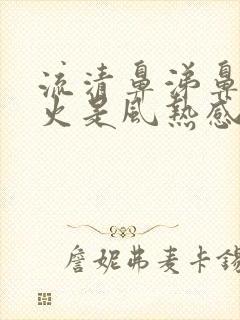 流清鼻涕鼻
火是風熱感
詹妮弗麦卡錫